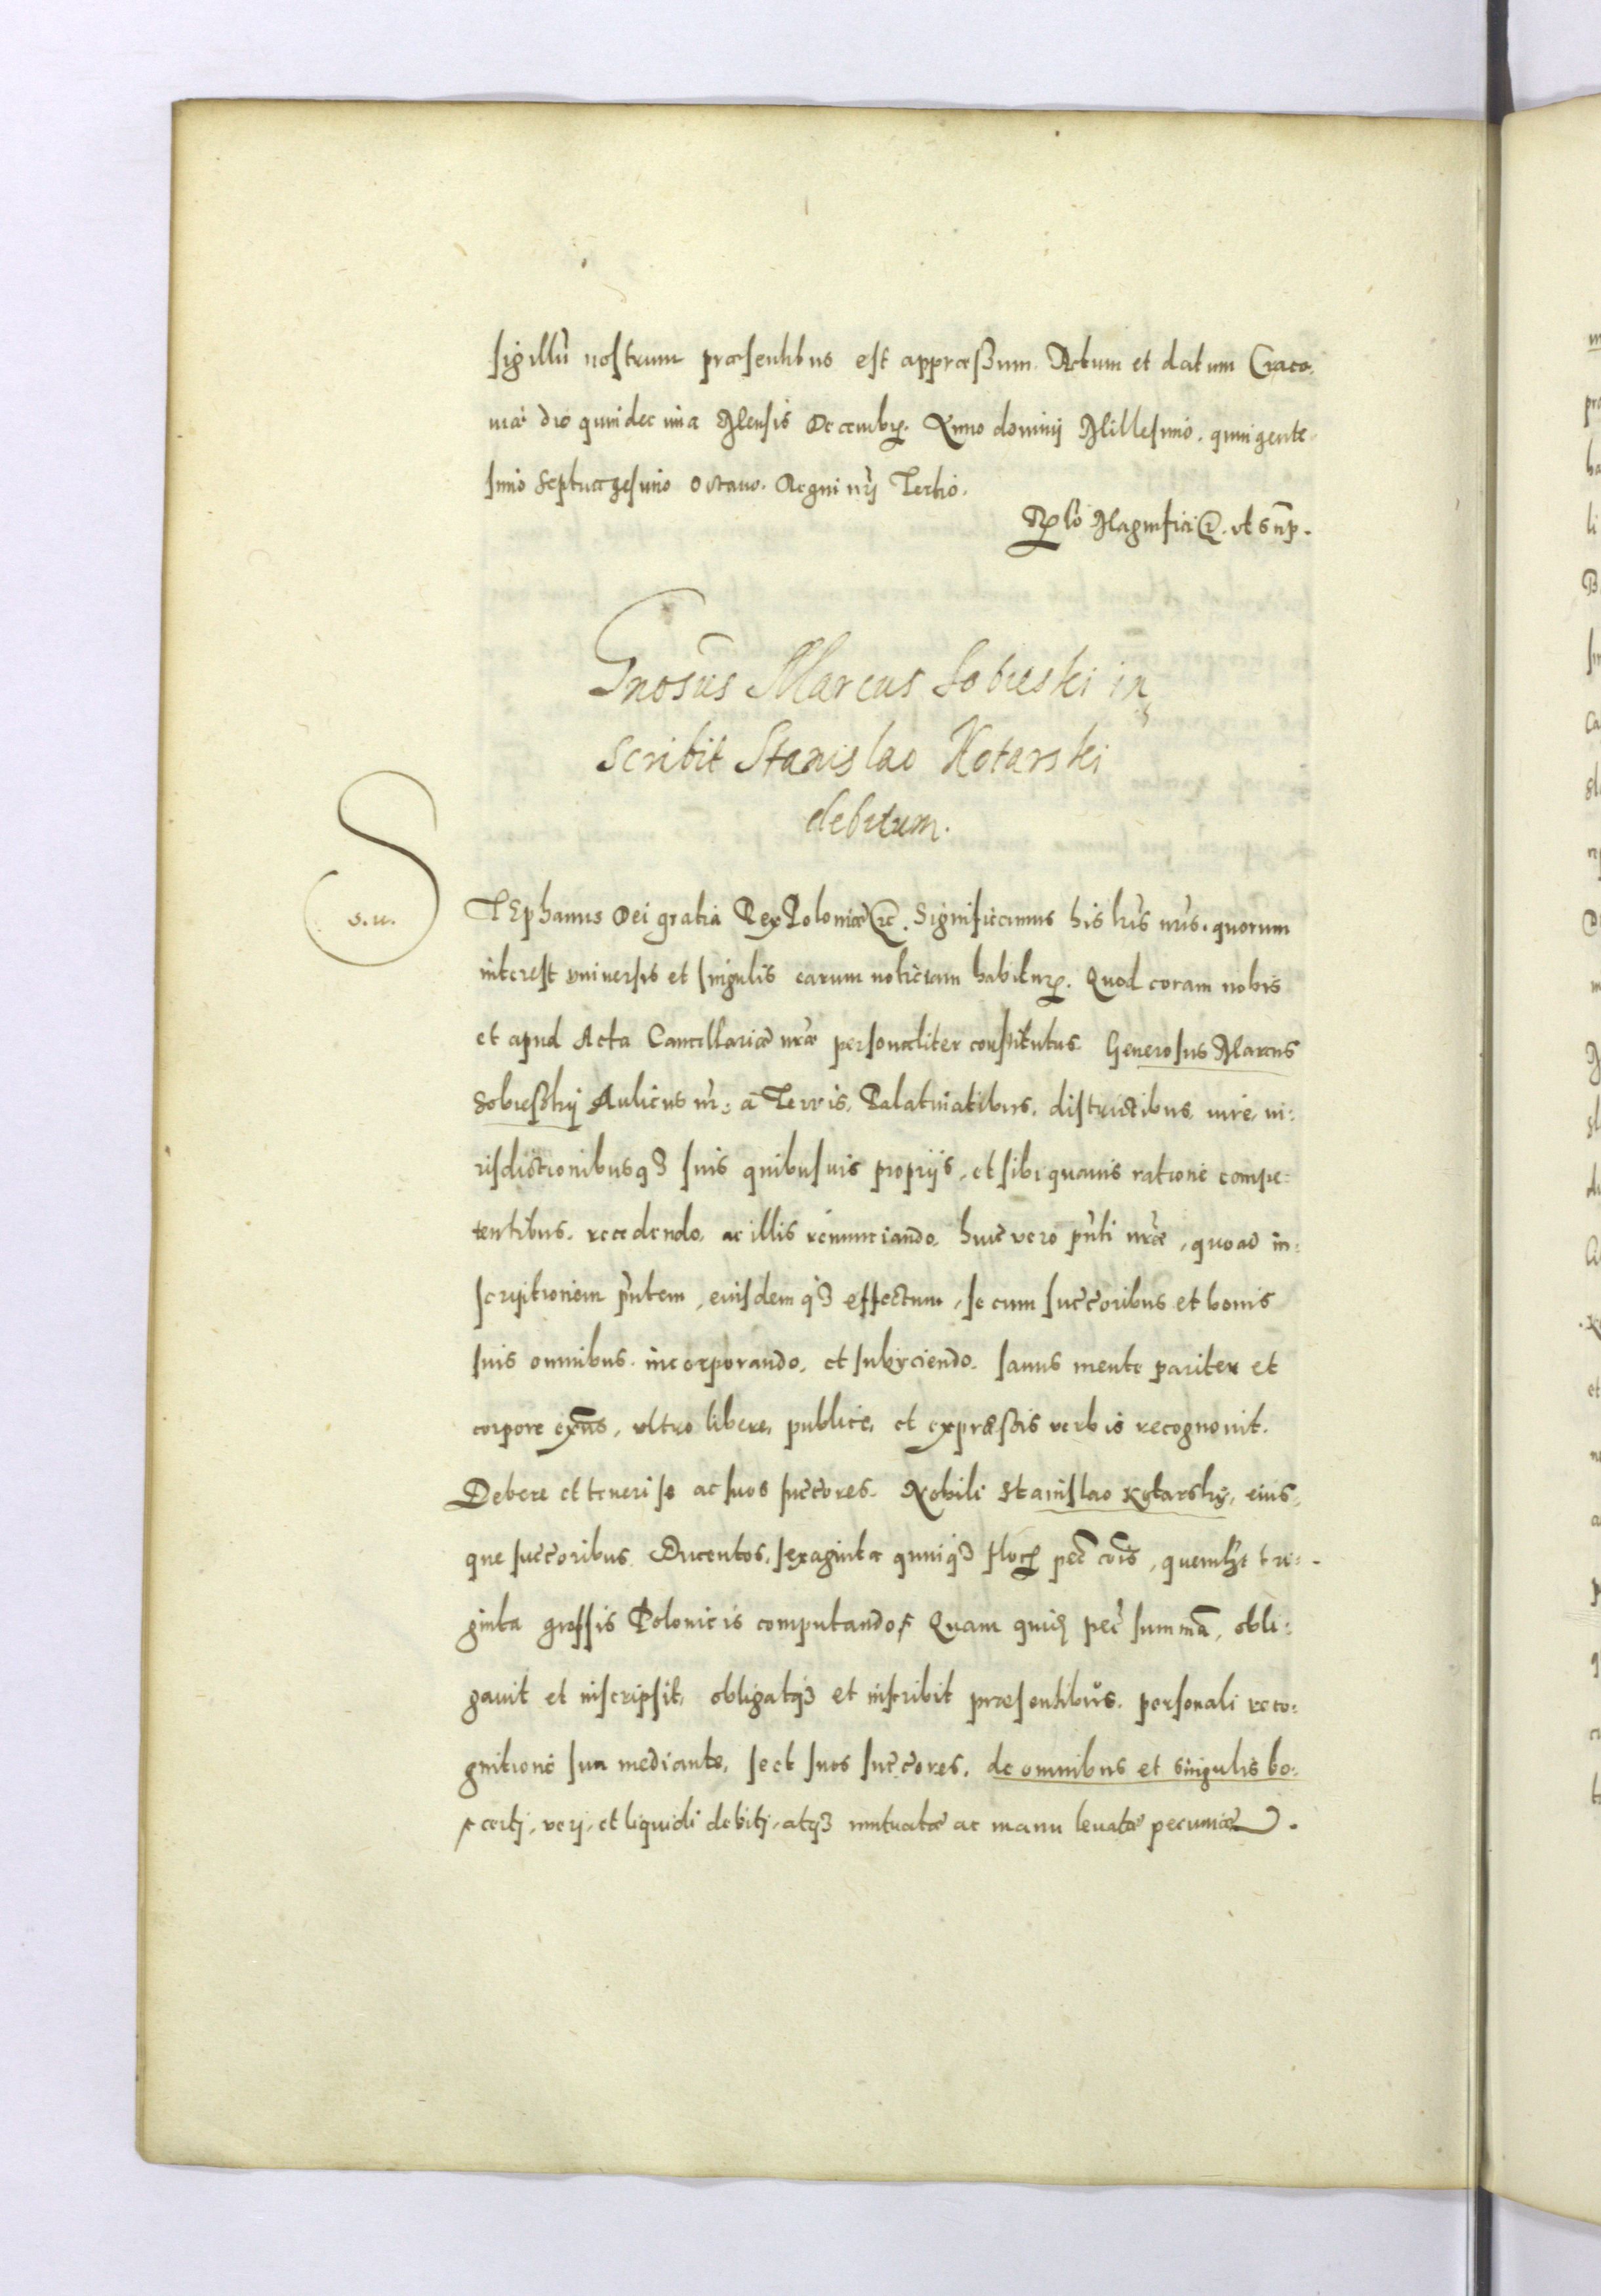 sigillũ nostrum præsentibus est appræssum. Actum et datum Craco:
uiæ die quindecima Mensis Decembꝝ. Anno dominj Millesimo. quingente-
simo Septuagesimo Octauo. Regni nrj Tertio.
Relo Magnifici etc. vt supͣ.
Gnosus Marcus Sobieski in
scribit Stanislao Kotarski
debitum.
S
s. u.
TEphanus Dei gratia Rex Poloniæ etc. Significamus his lris nris. quorum
interest vniuersis et singulis earum noticiam habiturꝝ. Quod coram nobis
et apud Acta Cancellariæ nræ personaliter constitutus Generosus Marcus
Sobiesskij Aulicus nr, a Terris, Palatinatibus, districtibus, iure, iu:
risdictionibusqꝫ suis quibusuis proprijs, et sibi quauis ratione compe:
tentibus. recedendo, ac illis renunciando. huic vero pñti nræ, quoad in:
scriptionem pñtem, eiusdemqꝫ effectum, se cum succoribus et bonis
suis omnibus. incorporando. et subijciendo. sanus mente pariter et
corpore exñs, vltro libere, publice, et expressis verbis recognouit.
Debere et teneri se ac suos succores. Nobili Stanislao Kotarsky, eius-
que succoribus Ducentos, sexaginta quinqꝫ floꝝ pec cois, quemlꝫt tri-
ginta grossis Polonicis computando, Quam quid pec summã, obli:
gauit et inscripsit, obligatqꝫ et inscribit præsentibus. personali reco:
gnitione sua mediante, se et suos succores, de omnibus et singulis bo:
certj, verj, et liquidi debitj, atqꝫ mutuatæ ac manu leuatæ pecuniæ.